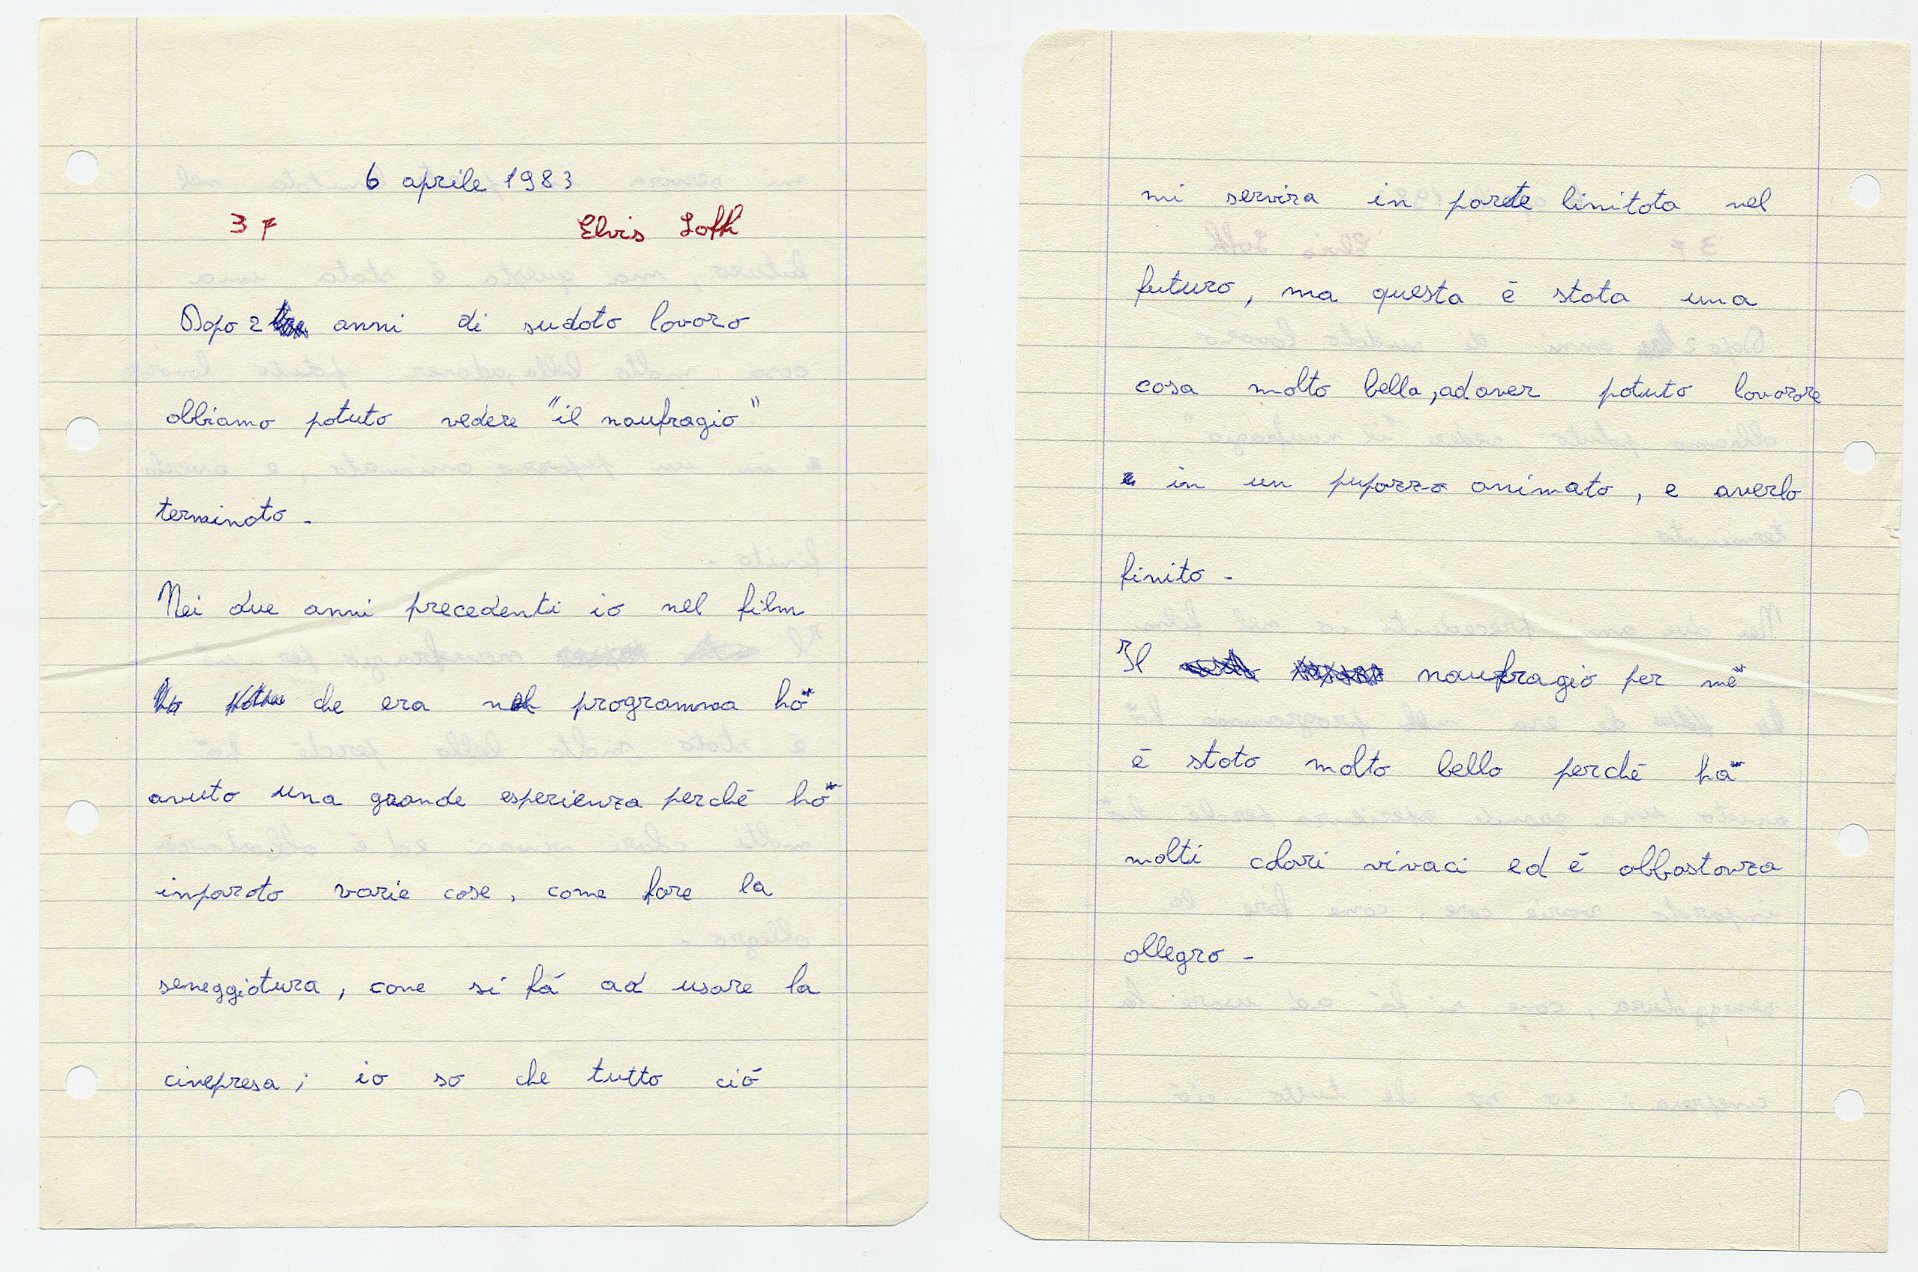 6 aprile 1983
3 F Elvis Loth
Dopo 2 anni di sudato lavoro
abbiamo potuto vedere "il naufragio"
terminato -
Nei due anni precedenti io nel film
che era nel programma ho
avuto una grande esperienza perché ho
inparato varie cose, come fare la
seneggiatura, come si fá ad usare la
cinepresa; io so che tutto ció
mi servira in parte linitata nel
futuro, ma questa é stata una
cosa molto bella, ad aver potuto lavorare
in un pupazzo animato, e averlo
finito -
Il naufragio per me
é stato molto bello perché ha
molti colori vivaci ed é abbastanza
allegro -